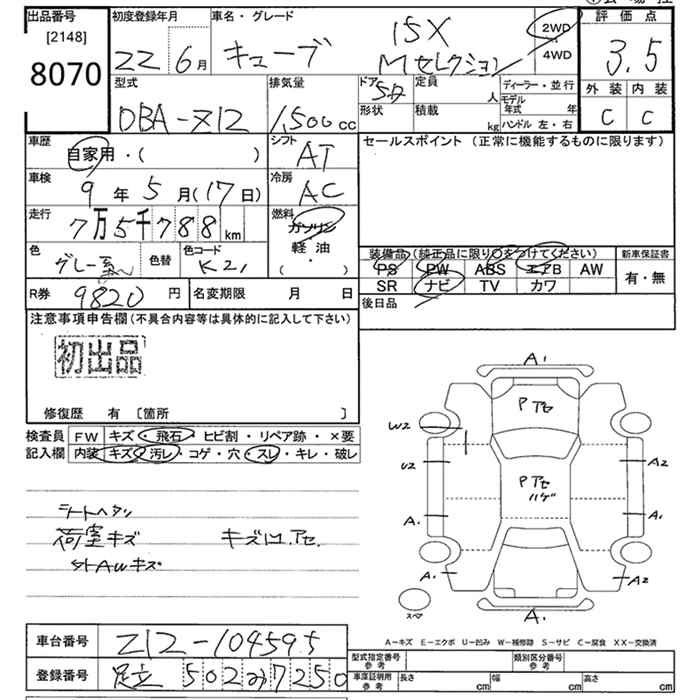 出品番号
[2148]
8070
初度登録年月
22 6月
車名・グレード
キューブ
15X
Mセレクション
2WD
4WD
評価点
3.5
外装 内装
C C
型式
DBA-Z12
排気量
1,500cc
ドア
5D
形状
定員
人
積載
kg
ディーラー・並行
モデル年式 年
ハンドル 左・右
車歴
自家用・( )
シフト
AT
車検
9年5月(17日)
冷房
AC
走行
7万5千788km
燃料
ガソリン
軽油
( ・ )
色
グレー系
色替
色コード
K21
R券
9820円
名変期限 月 日
セールスポイント (正常に機能するものに限ります)
装備品 (純正品に限り〇をつけてください)
PS PW ABS エアB AW
SR ナビ TV カワ
新車保証書
有・無
後日品
注意事項申告欄(不具合内容等は具体的に記入して下さい)
初出品
修復歴 有 〔箇所 〕
検査員記入欄
FW キズ・飛石・ヒビ割・リペア跡・×要
内装 キズ・汚レ・コゲ・穴・スレ・キレ・破レ
シートヘタリ
荷室キズ キズ凹.アセ.
外AWキズ
A1
Pアセ
W2
U2
A2
Pアセ
ハゲ
A1
A1
A1
A2
スペア
A1
A-キズ E-エクボ U-凹み W-補修跡 S-サビ C-腐食 XX-交換済
車台番号
Z12-104595
登録番号
足立 502み7250
型式指定番号
参考
類別区分番号
参考
車庫証明用
参考
長さ cm
幅 cm
高さ cm